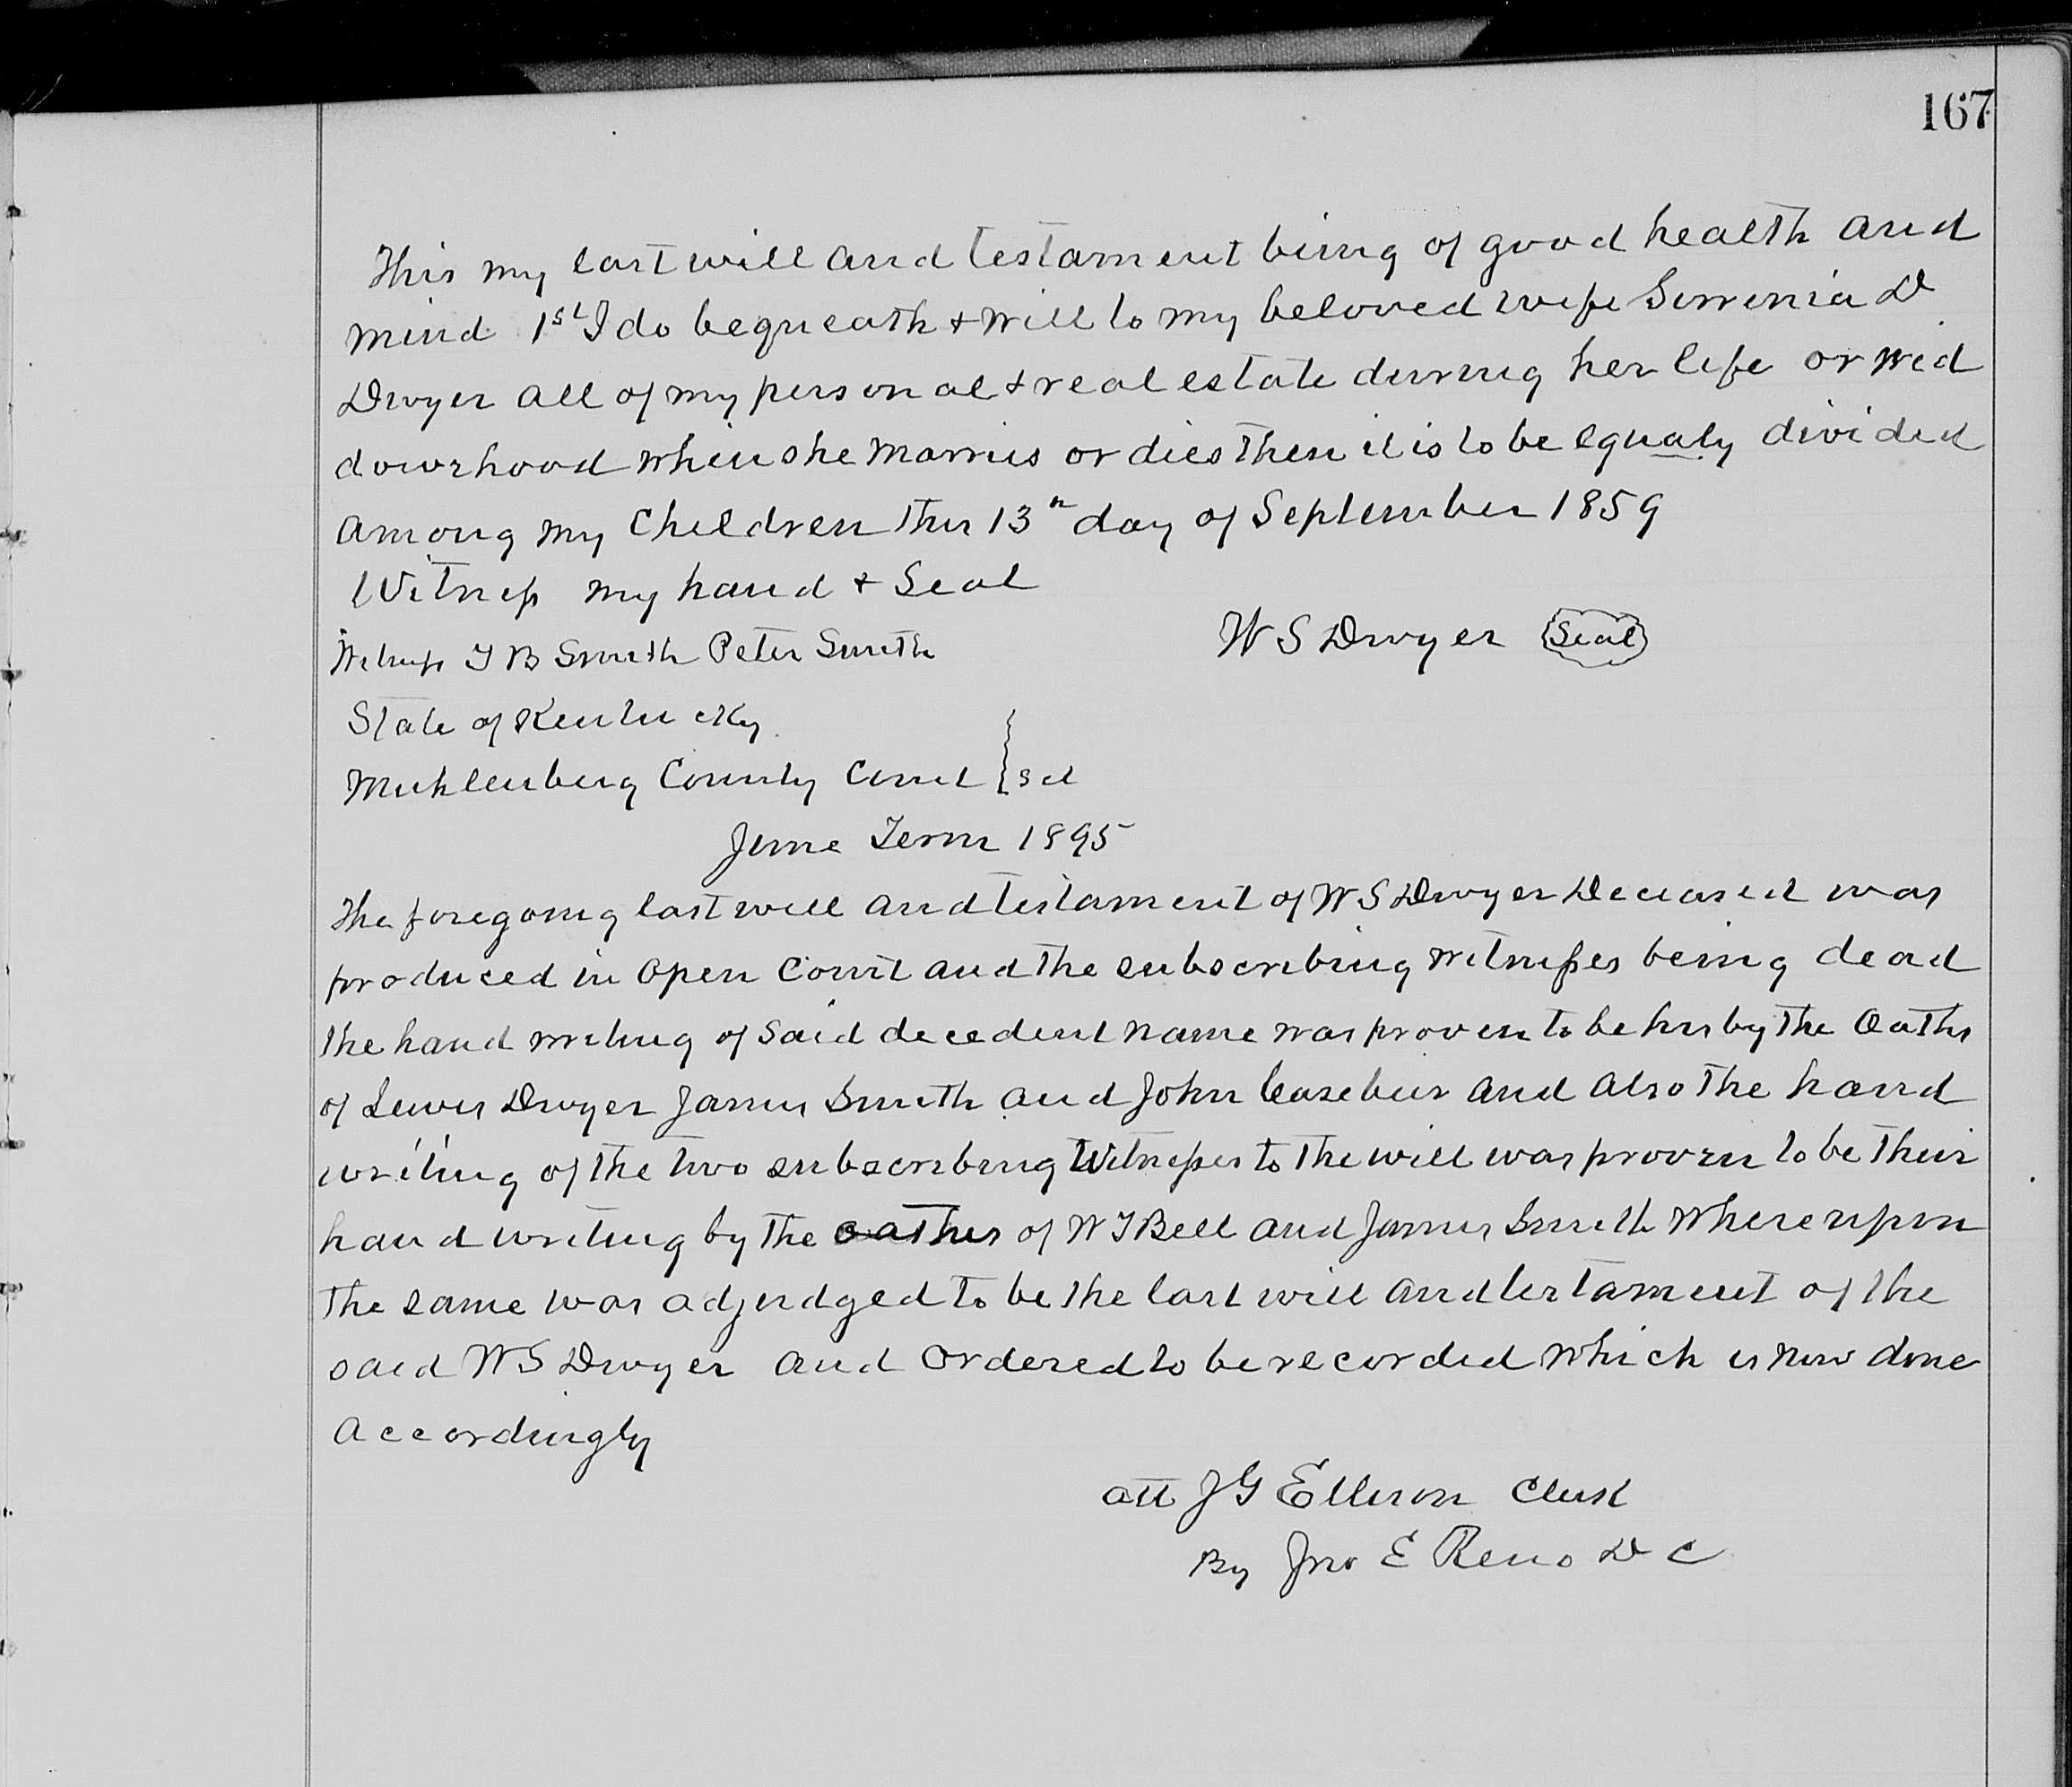 167
This my last will and testament being of good health and
mind 1st I do bequeath & will to my beloved wife D
Dwyer all of my personal & real estate during her life or wid
dowrhood when she marries or dies then it is to be equaly divided
among my Children this 13th day of September 1859
Witness my hand & Seal
W S Dwyer Seal
Witness B Smith Peter Smith
State of Kentucky
Muhlenberg County Court
June Term 1895
The foregoing last will and testament of W S Dwyer Deceased was
produced in open Court and the subscribing witnesses being dead
the hand writing of said decedent name was proven to be his by the Oaths
of Lewis Dwyer James Smith and John and also the hand
writing of the two subscribing Witnesses to the will was proven to be their
hand writing by the oathes of W Bell and James Smith Whereupon
the same was adjudged to be the last will and testament of the
said W S Dwyer and ordered to be recorded which is now done
accordingly
att J G Ellison Clerk
By Jno E Reno D C